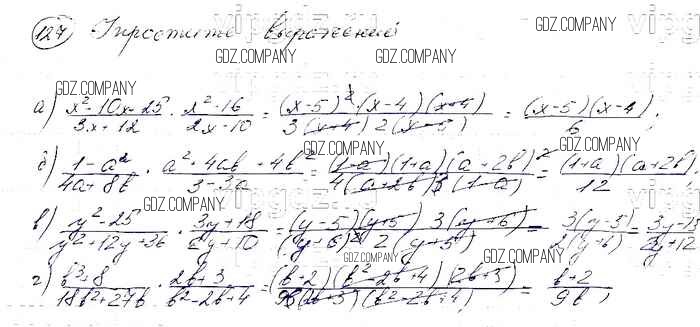 127 Упростить выражения
GDZ.COMPANY
GDZ.COMPANY
GDZ.COMPANY
GDZ.COMPANY
а) (x²-10x-25)/(3x+12) · (x²-16)/(2x-10) = ((x-5)²(x-4)(x+4))/(3(x+4)2(x-5)) = ((x-5)(x-4))/6;
GDZ.COMPANY
GDZ.COMPANY
б) (1-a²)/(4a+8b) · (a²+4ab+4b²)/(3-3a) = ((1-a)(1+a)(a+2b)²)/(4(a+2b)3(1-a)) = ((1+a)(a+2b))/12;
GDZ.COMPANY
в) (y²-25)/(y²+12y+36) · (3y+18)/(2y+10) = ((y-5)(y+5) 3(y+6))/((y+6)² 2(y+5)) = (3(y-5))/(2(y+6)) = (3y-15)/(2y+12)
GDZ.COMPANY
GDZ.COMPANY
г) (b³+8)/(18b²+27b) · (2b+3)/(b²-2b+4) = ((b+2)(b²-2b+4)(2b+3))/(9b(2b+3)(b²-2b+4)) = (b+2)/(9b)